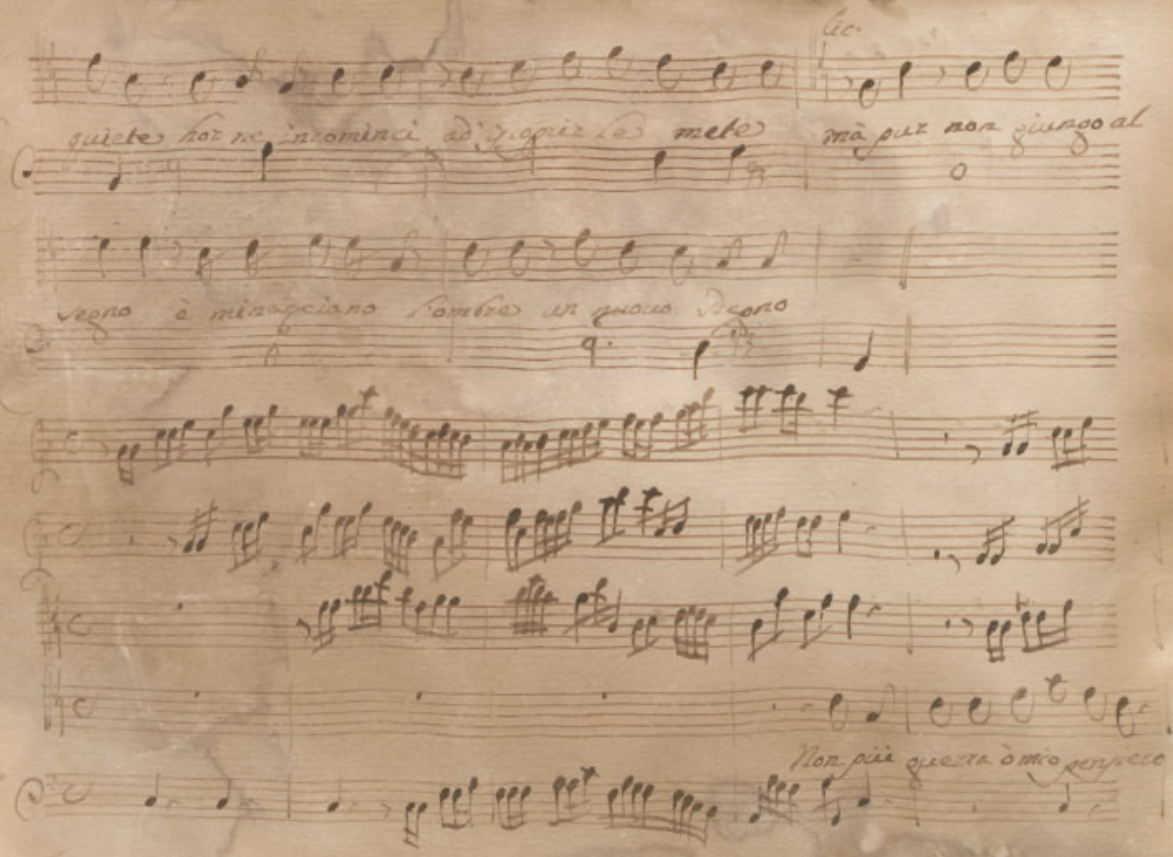 quiete hor ne incominci ad scoprir le mete mà pur non giungo al
segno è minacciano l'ombre un nuouo sdegno
Non più guerra ò mio pensiero